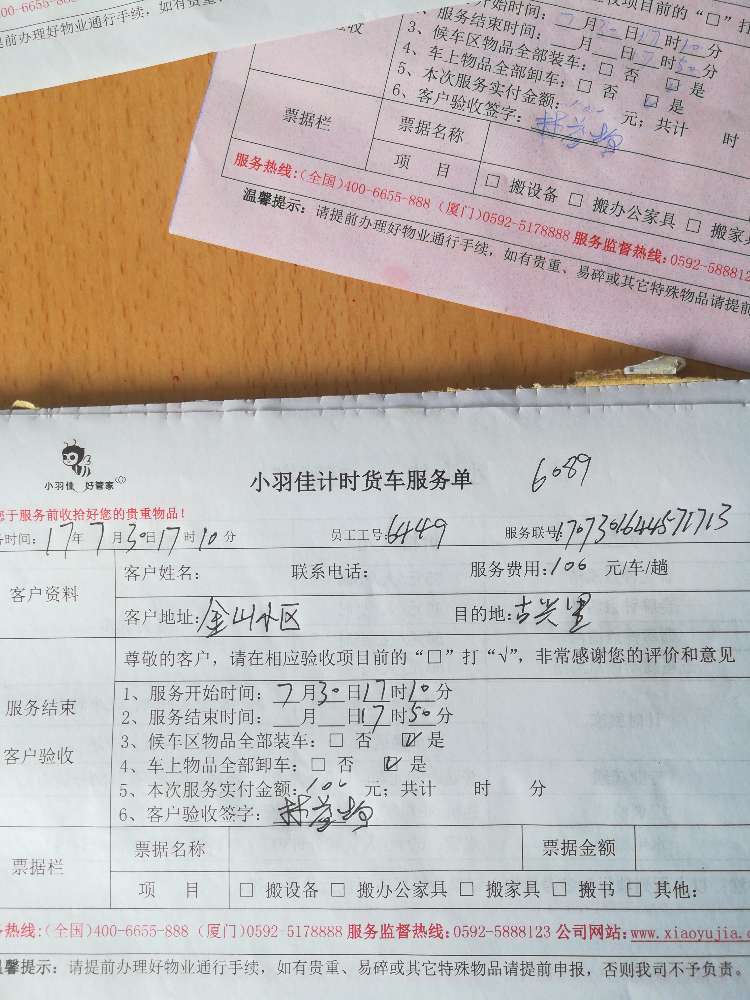 00-6655-8
提前办理好物业通行手续，如有贵重
服务开始时间：7月30日17时10分
2、服务结束时间：  月  日17时50分
3、候车区物品全部装车：□ 否 ☑ 是
4、车上物品全部卸车：□ 否 ☑ 是
5、本次服务实付金额：100 元；共计 时
6、客户验收签字：
票据栏
票据名称
项 目
□ 搬设备 □ 搬办公家具 □ 搬家具
服务热线:(全国)400-6655-888 (厦门)0592-5178888 服务监督热线:0592-588812
温馨提示：请提前办理好物业通行手续，如有贵重、易碎或其它特殊物品请提前
小羽佳 好管家
小羽佳计时货车服务单
6089
您于服务前收拾好您的贵重物品！
务时间：17年7月30日17时10分 员工工号:6449 服务联号:
客户资料
客户姓名： 联系电话： 服务费用:100 元/车/趟
客户地址:金山小区 目的地:古兴里
尊敬的客户，请在相应验收项目前的“□”打“√”，非常感谢您的评价和意见
服务结束
客户验收
1、服务开始时间：7月30日17时10分
2、服务结束时间：  月  日17时50分
3、候车区物品全部装车：□ 否 ☑ 是
4、车上物品全部卸车：□ 否 ☑ 是
5、本次服务实付金额:100 元；共计 时 分
6、客户验收签字：
票据栏
票据名称 票据金额
项 目 □ 搬设备 □ 搬办公家具 □ 搬家具 □ 搬书 □ 其他:
务热线:(全国)400-6655-888 (厦门)0592-5178888 服务监督热线:0592-5888123 公司网站:www.xiaoyujia.c
温馨提示：请提前办理好物业通行手续，如有贵重、易碎或其它特殊物品请提前申报，否则我司不予负责。